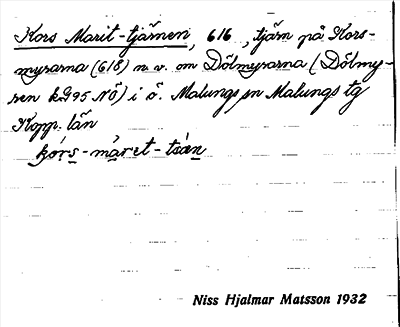 Kors Marit-tjärnen, 616, tjärn på Kors-
myrarna (618) n.v. om Dölmyrarna (Dölmy-
ren kG95NÖ) i ö. Malungs sn Malungs tg
Kopp. län
kórs-màret-tsä̀n
Niss Hjalmar Matsson 1932